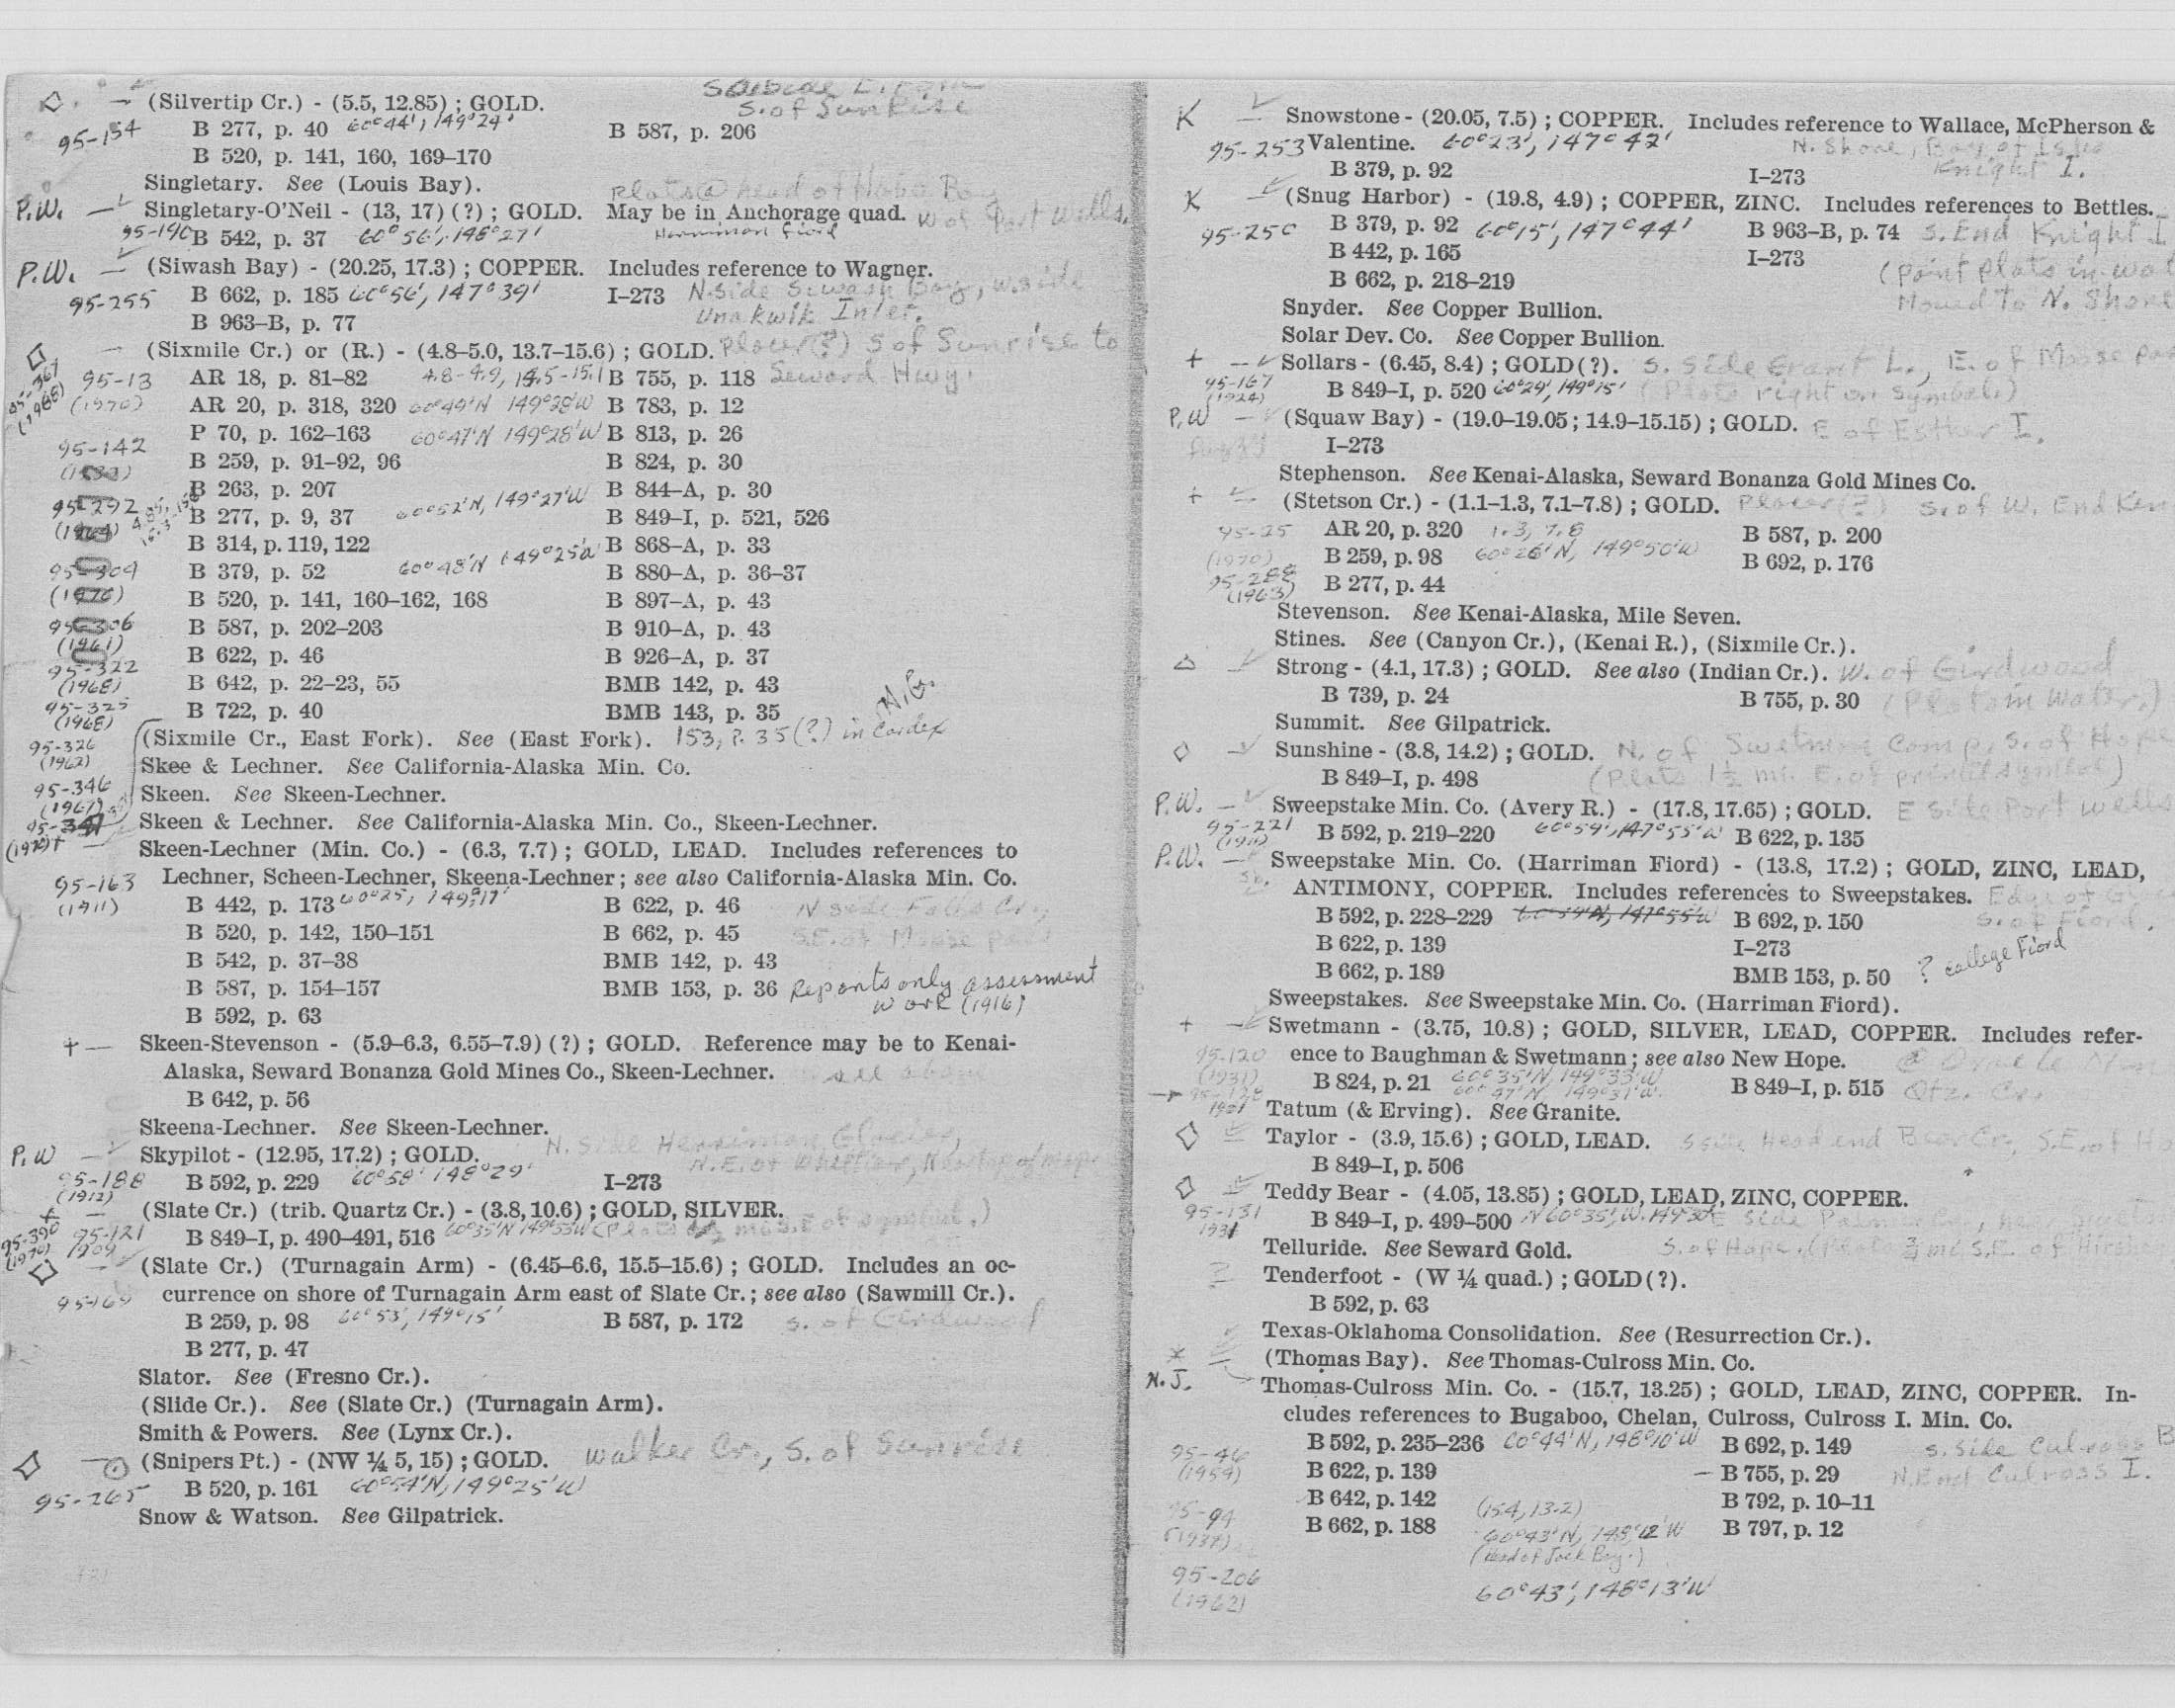 S. of Sunrise
(Silvertip Cr.) - (5.5, 12.85) ; GOLD.
95-154 B 277, p. 40 60°44', 149°24' B 587, p. 206
B 520, p. 141, 160, 169–170
Singletary. See (Louis Bay).
Plots @ head of Hobo Bay
P.W. Singletary-O'Neil - (13, 17) (?) ; GOLD. May be in Anchorage quad. W of Port Wells.
95-190 B 542, p. 37 60°56', 148°27' Harriman Fiord
P.W. (Siwash Bay) - (20.25, 17.3) ; COPPER. Includes reference to Wagner.
95-255 B 662, p. 185 60°56', 147°39' I–273 N. side Siwash Bay, W. side
B 963–B, p. 77 Unakwik Inlet.
(Sixmile Cr.) or (R.) - (4.8–5.0, 13.7–15.6) ; GOLD. Placer(?) S of Sunrise to
95-13 AR 18, p. 81–82 4.8-4.9, 14.5-15.1 B 755, p. 118 Seward Hwy.
(1970) AR 20, p. 318, 320 60°49'N 149°28'W B 783, p. 12
P 70, p. 162–163 60°47'N 149°28'W B 813, p. 26
95-142 B 259, p. 91–92, 96 B 824, p. 30
B 263, p. 207 B 844–A, p. 30
95-292 B 277, p. 9, 37 60°52'N, 149°27'W B 849–I, p. 521, 526
B 314, p. 119, 122 B 868–A, p. 33
95-304 B 379, p. 52 60°48'N 149°25'W B 880–A, p. 36–37
(1970) B 520, p. 141, 160–162, 168 B 897–A, p. 43
95-306 B 587, p. 202–203 B 910–A, p. 43
(1961) B 622, p. 46 B 926–A, p. 37
95-322 (1968) B 642, p. 22–23, 55 BMB 142, p. 43
95-325 (1968) B 722, p. 40 BMB 143, p. 35 N.G.
95-326 (1962) (Sixmile Cr., East Fork). See (East Fork). 153, P. 35(?) in Cardex
Skee & Lechner. See California-Alaska Min. Co.
95-346 (1967) Skeen. See Skeen-Lechner.
Skeen & Lechner. See California-Alaska Min. Co., Skeen-Lechner.
Skeen-Lechner (Min. Co.) - (6.3, 7.7) ; GOLD, LEAD. Includes references to
95-163 Lechner, Scheen-Lechner, Skeena-Lechner; see also California-Alaska Min. Co.
(1911) B 442, p. 173 60°25', 149°17' B 622, p. 46 N side Falls Cr.,
B 520, p. 142, 150–151 B 662, p. 45 S.E. of Moose Pass
B 542, p. 37–38 BMB 142, p. 43
B 587, p. 154–157 BMB 153, p. 36 Reports only assessment
B 592, p. 63 work (1916)
+ Skeen-Stevenson - (5.9–6.3, 6.55–7.9) (?) ; GOLD. Reference may be to Kenai-
Alaska, Seward Bonanza Gold Mines Co., Skeen-Lechner. see above
B 642, p. 56
Skeena-Lechner. See Skeen-Lechner.
P.W Skypilot - (12.95, 17.2) ; GOLD. N. side Harriman Glacier,
95-188 (1912) B 592, p. 229 60°58' 148°29' I–273 N.E. of Whittier, Near top of map
(Slate Cr.) (trib. Quartz Cr.) - (3.8, 10.6) ; GOLD, SILVER.
95-390 (1970) 95-121 1909 B 849–I, p. 490–491, 516 60°35'N 149°33'W
(Slate Cr.) (Turnagain Arm) - (6.45–6.6, 15.5–15.6) ; GOLD. Includes an oc-
currence on shore of Turnagain Arm east of Slate Cr.; see also (Sawmill Cr.).
B 259, p. 98 60°53', 149°15' B 587, p. 172 S. of Girdwood
B 277, p. 47
Slator. See (Fresno Cr.).
(Slide Cr.). See (Slate Cr.) (Turnagain Arm).
Smith & Powers. See (Lynx Cr.).
(Snipers Pt.) - (NW ¼ 5, 15) ; GOLD. Walker Cr., S. of Sunrise
95-265 B 520, p. 161 60°54'N, 149°25'W
Snow & Watson. See Gilpatrick.
K Snowstone - (20.05, 7.5) ; COPPER. Includes reference to Wallace, McPherson &
95-253 Valentine. 60°23', 147°42' N. Shore, Bay of Isles
B 379, p. 92 I–273 Knight I.
K (Snug Harbor) - (19.8, 4.9) ; COPPER, ZINC. Includes references to Bettles.
95-250 B 379, p. 92 60°15', 147°44' B 963–B, p. 74 S. End Knight I
B 442, p. 165 I–273 (Point plots in wat
B 662, p. 218–219 Moved to N. Shore
Snyder. See Copper Bullion.
Solar Dev. Co. See Copper Bullion.
+ Sollars - (6.45, 8.4) ; GOLD(?). S. side Grant L., E. of Moose Pass
95-167 (1924) B 849–I, p. 520 60°29', 149°15' (Plots right on symbol.)
P.W (Squaw Bay) - (19.0–19.05; 14.9–15.15) ; GOLD. E of Esther I.
I–273
Stephenson. See Kenai-Alaska, Seward Bonanza Gold Mines Co.
+ (Stetson Cr.) - (1.1–1.3, 7.1–7.8) ; GOLD. Placer(?) S. of W. End Ken
95-25 AR 20, p. 320 1.3, 7.8 B 587, p. 200
(1970) B 259, p. 98 60°26'N, 149°50'W B 692, p. 176
95-288 (1963) B 277, p. 44
Stevenson. See Kenai-Alaska, Mile Seven.
Stines. See (Canyon Cr.), (Kenai R.), (Sixmile Cr.).
Strong - (4.1, 17.3) ; GOLD. See also (Indian Cr.). W. of Girdwood
B 739, p. 24 B 755, p. 30 (Plots in Water.)
Summit. See Gilpatrick.
Sunshine - (3.8, 14.2) ; GOLD. N. of Swetmann Camp, S. of Hope
B 849–I, p. 498 (Plots 1½ mi. E. of printed symbol)
P.W. Sweepstake Min. Co. (Avery R.) - (17.8, 17.65) ; GOLD. E side Port Wells
95-221 B 592, p. 219–220 60°59', 147°55'W B 622, p. 135
P.W. Sweepstake Min. Co. (Harriman Fiord) - (13.8, 17.2) ; GOLD, ZINC, LEAD,
ANTIMONY, COPPER. Includes references to Sweepstakes. Edge of
B 592, p. 228–229 60°59'N, 147°55'W B 692, p. 150 S. of Fiord.
B 622, p. 139 I–273
B 662, p. 189 BMB 153, p. 50 ? College Fiord
Sweepstakes. See Sweepstake Min. Co. (Harriman Fiord).
+ Swetmann - (3.75, 10.8) ; GOLD, SILVER, LEAD, COPPER. Includes refer-
95-120 (1931) ence to Baughman & Swetmann; see also New Hope.
B 824, p. 21 60°35'N, 149°33'W B 849–I, p. 515 Qtz. Cr.
60°37'N, 149°31'W.
Tatum (& Erving). See Granite.
Taylor - (3.9, 15.6) ; GOLD, LEAD. S side Head end Bear Cr., S.E. of Ho
B 849–I, p. 506
Teddy Bear - (4.05, 13.85) ; GOLD, LEAD, ZINC, COPPER.
95-131 1931 B 849–I, p. 499–500 N 60°35', W. 149°30'
Telluride. See Seward Gold. S. of Hope.
Tenderfoot - (W ¼ quad.) ; GOLD(?).
B 592, p. 63
Texas-Oklahoma Consolidation. See (Resurrection Cr.).
(Thomas Bay). See Thomas-Culross Min. Co.
N.J. Thomas-Culross Min. Co. - (15.7, 13.25) ; GOLD, LEAD, ZINC, COPPER. In-
cludes references to Bugaboo, Chelan, Culross, Culross I. Min. Co.
95-46 B 592, p. 235–236 60°44'N, 148°10'W B 692, p. 149 S. side Culross B
(1959) B 622, p. 139 B 755, p. 29 N. End Culross I.
95-94 B 642, p. 142 (15.4, 13.2) B 792, p. 10–11
B 662, p. 188 60°43'N, 148°12'W B 797, p. 12
(Head of Jack Bay.)
95-206 (1962) 60°43', 148°13'W